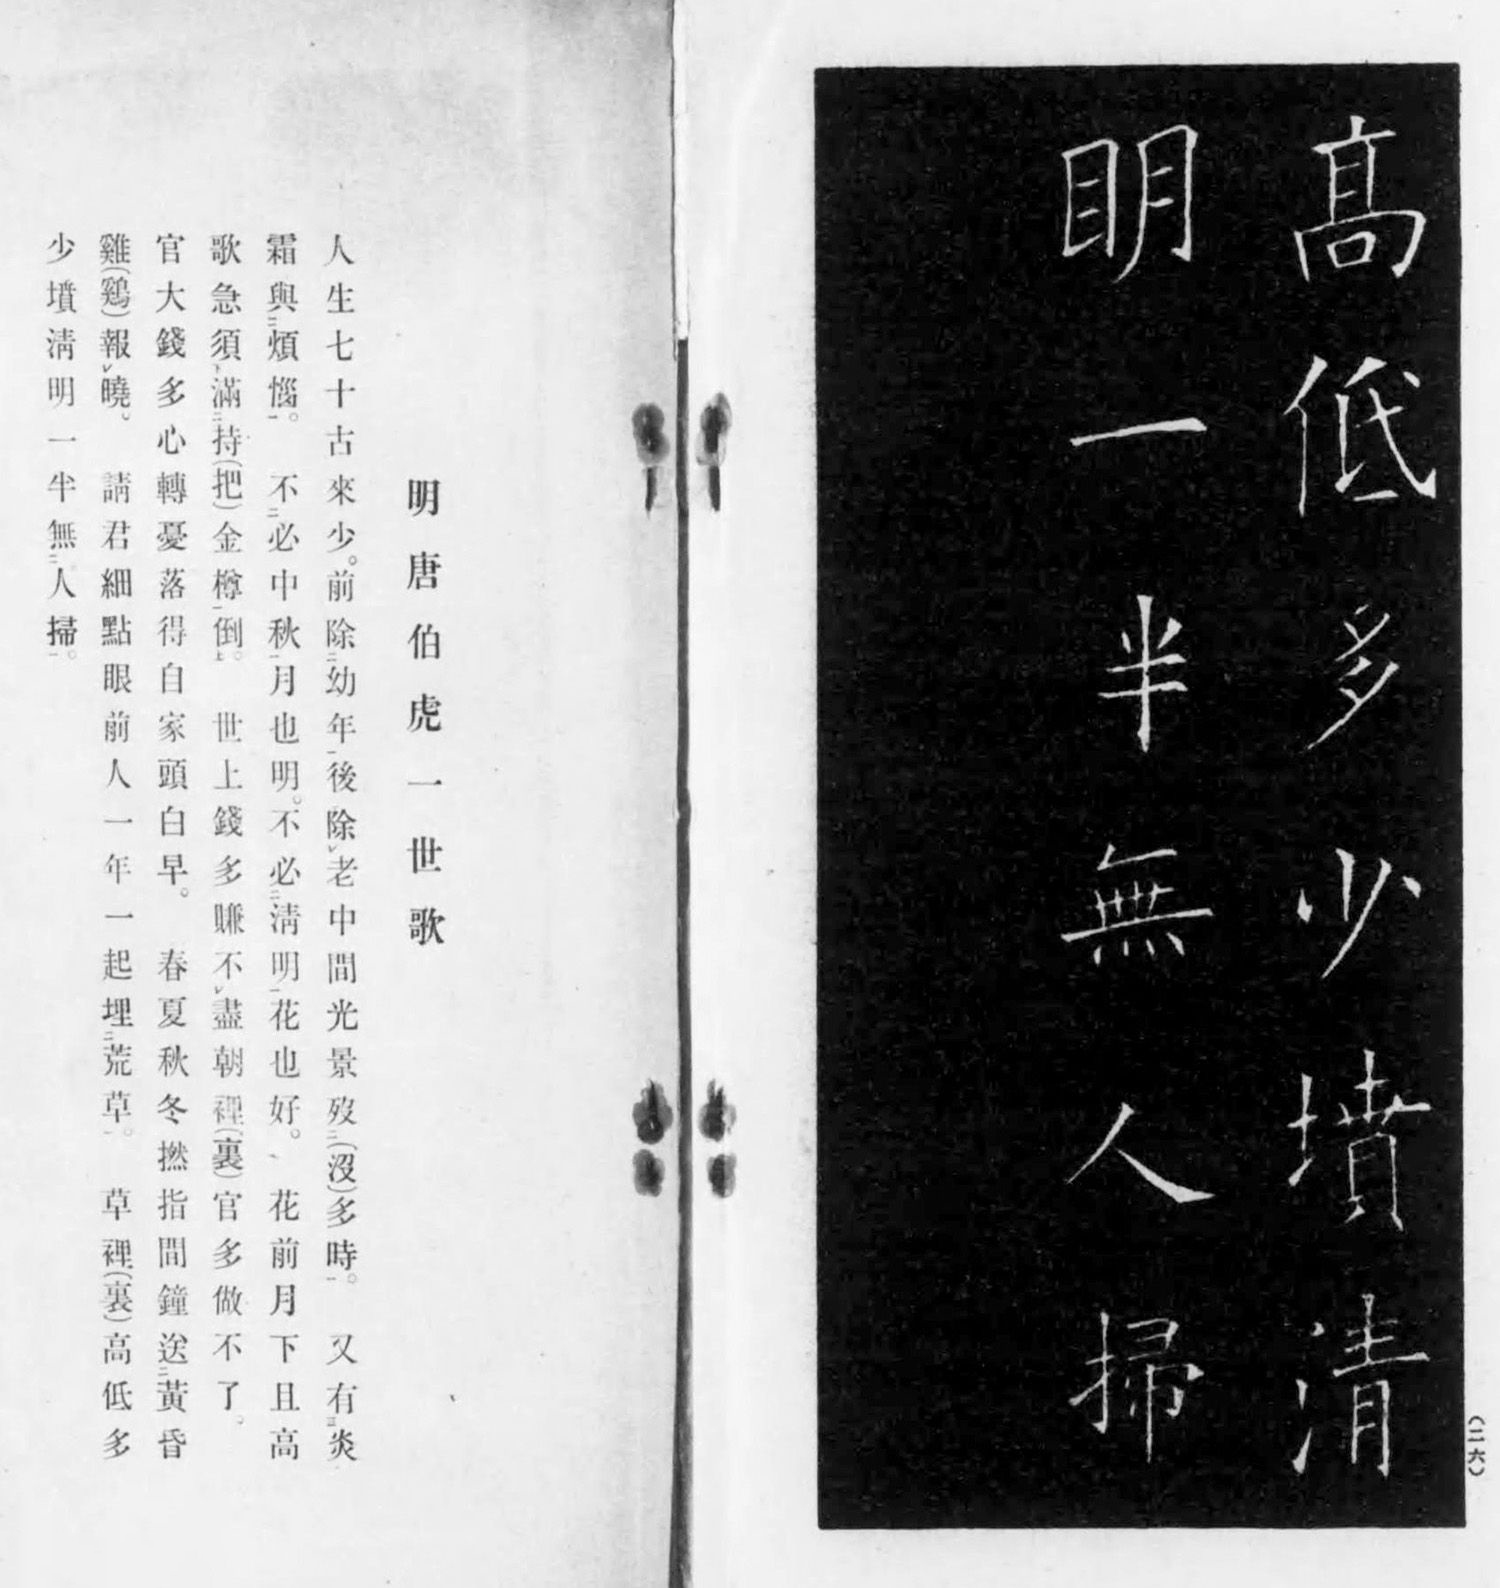 高低多少墳清
明一半無人掃
(二六)
明唐伯虎一世歌
人生七十古來少。前除幼年後除老中間光景歿(沒)多時。又有炎
霜與煩惱。不必中秋月也明。不必淸明花也好。花前月下且高
歌急須滿持(把)金樽倒。世上錢多賺不盡朝裡(裏)官多做不了。
官大錢多心轉憂落得自家頭白早。春夏秋冬撚指間鐘送黃昏
雞(鷄)報曉。請君細點眼前人一年一起埋荒草。草裡(裏)高低多
少墳淸明一半無人掃。